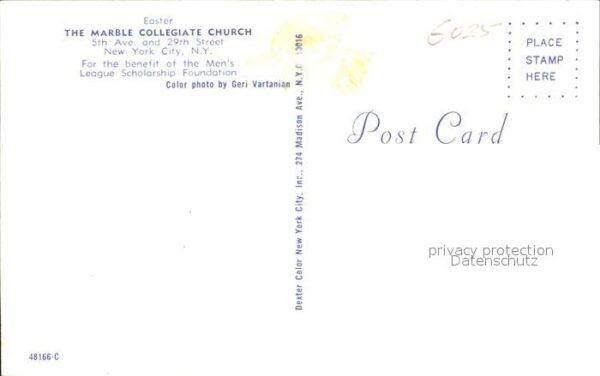 Easter
THE MARBLE COLLEGIATE CHURCH
5th Ave. and 29th Street
New York City, N.Y.
For the benefit of the Men's
League Scholarship Foundation
Color photo by Geri Vartanian
Dexter Color New York City, Inc., 274 Madison Ave., N.Y.C. 10016
6025
PLACE
STAMP
HERE
Post Card
privacy protection
Datenschutz
48166-C